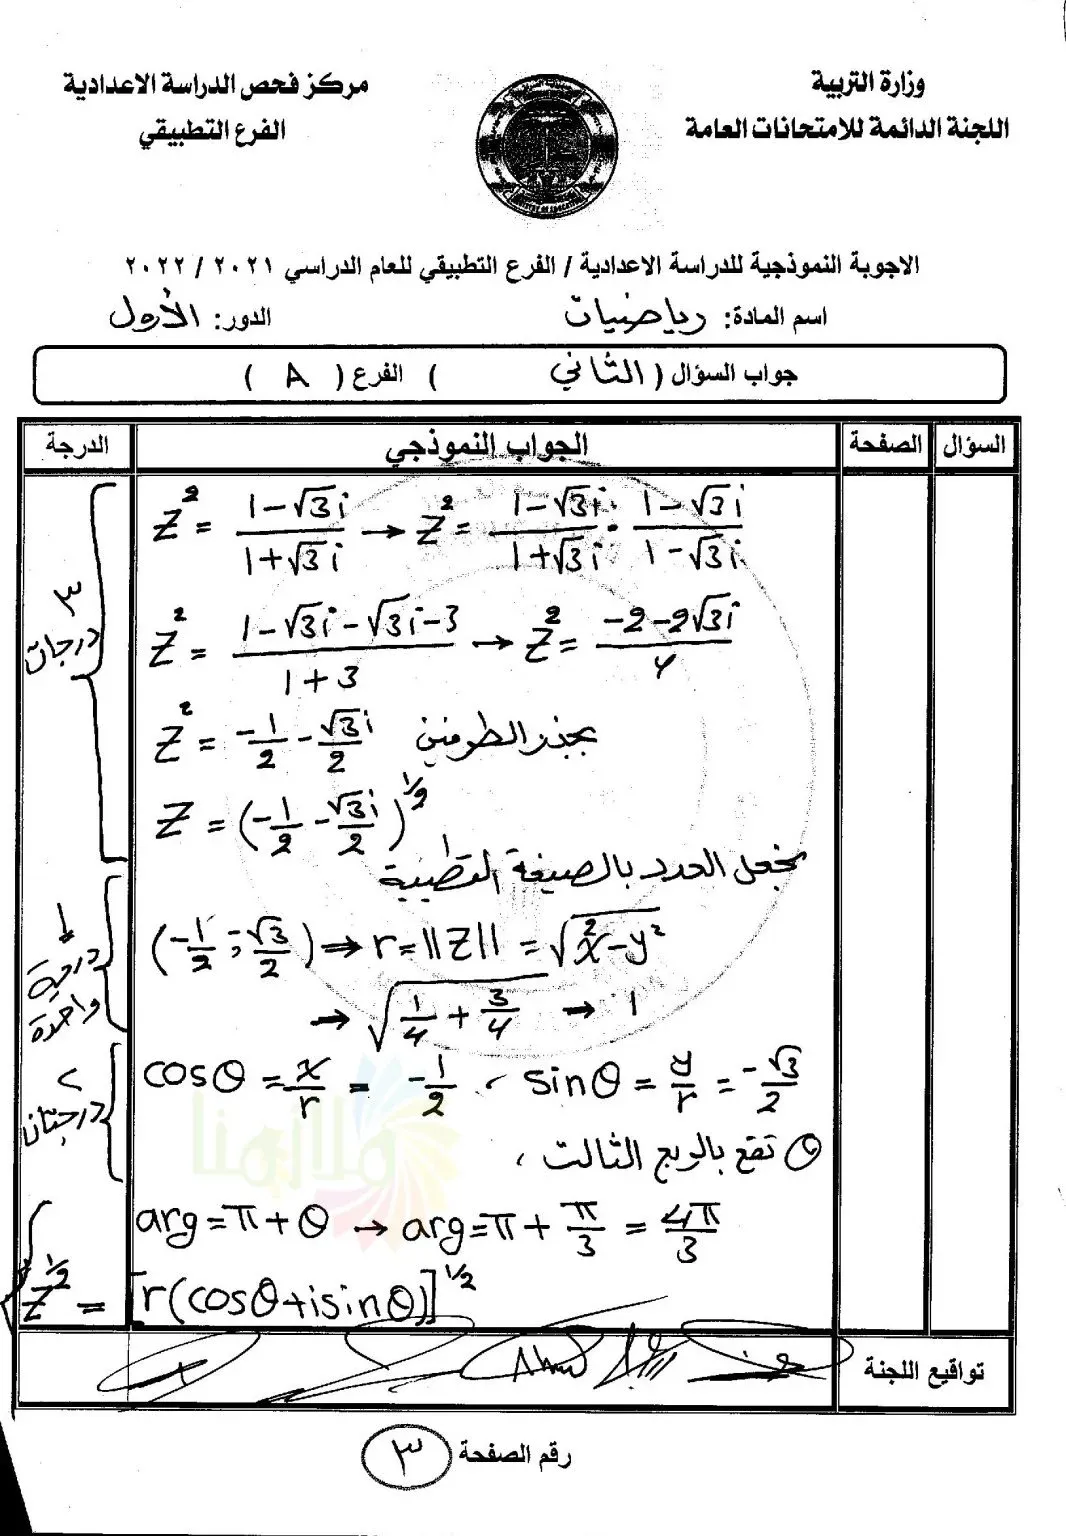 وزارة التربية
اللجنة الدائمة للامتحانات العامة
مركز فحص الدراسة الاعدادية
الفرع التطبيقي
الاجوبة النموذجية للدراسة الاعدادية / الفرع التطبيقي للعام الدراسي ٢٠٢١ / ٢٠٢٢
اسم المادة: رياضيات الدور: الأول
جواب السؤال ( الثاني ) الفرع ( A )
السؤال الصفحة الجواب النموذجي الدرجة
Z² = (1-√3i)/(1+√3i) → Z² = (1-√3i)/(1+√3i) · (1-√3i)/(1-√3i)
٣ درجات
Z² = (1-√3i-√3i-3)/(1+3) → Z² = (-2-2√3i)/4
Z² = -1/2 - √3i/2 بجذر الطرفين
Z = (-1/2 - √3i/2)^1/2
نجعل العدد بالصيغة القطبية
(-1/2, -√3/2) ⇒ r = ||Z|| = √(x²-y²)
درجة واحدة
→ √(1/4 + 3/4) → 1
cosθ = x/r = -1/2 ، sinθ = y/r = -√3/2
٢ درجتان
θ تقع بالربع الثالث ،
arg = π + θ → arg = π + π/3 = 4π/3
Z^1/2 = [r(cosθ+isinθ)]^1/2
تواقيع اللجنة
رقم الصفحة ٣
ملازمنا